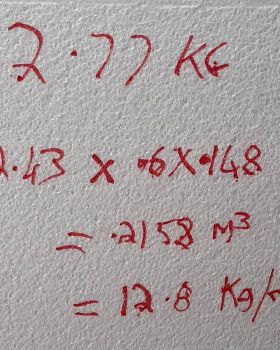 2.77 KG
2.43 x .6 x .148
= .2158 M³
= 12.8 Kg/